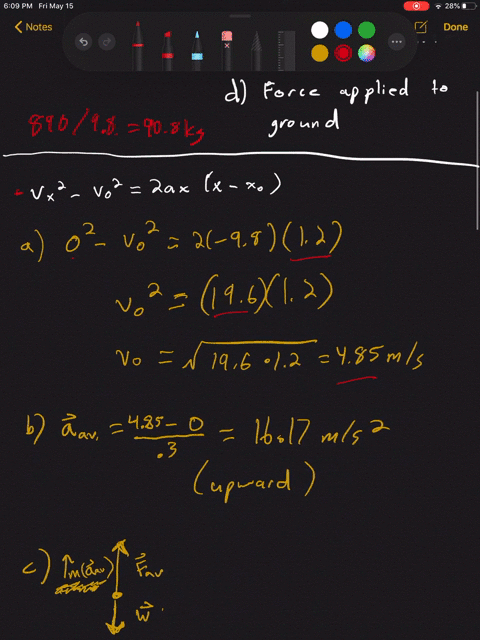 6:09 PM Fri May 15
28%
Notes
Done
d) Force applied to
ground
890/9.8 = 90.8kg
- Vx² - V0² = 2ax (x - x0)
a) 0² - V0² = 2(-9.8)(1.2)
V0² = (19.6)(1.2)
V0 = √19.6 • 1.2 = 4.85 m/s
b) a⃗av. = 4.85 - 0 / .3 = 16.17 m/s²
(upward)
c) ↑m(a⃗av) F⃗av
w⃗